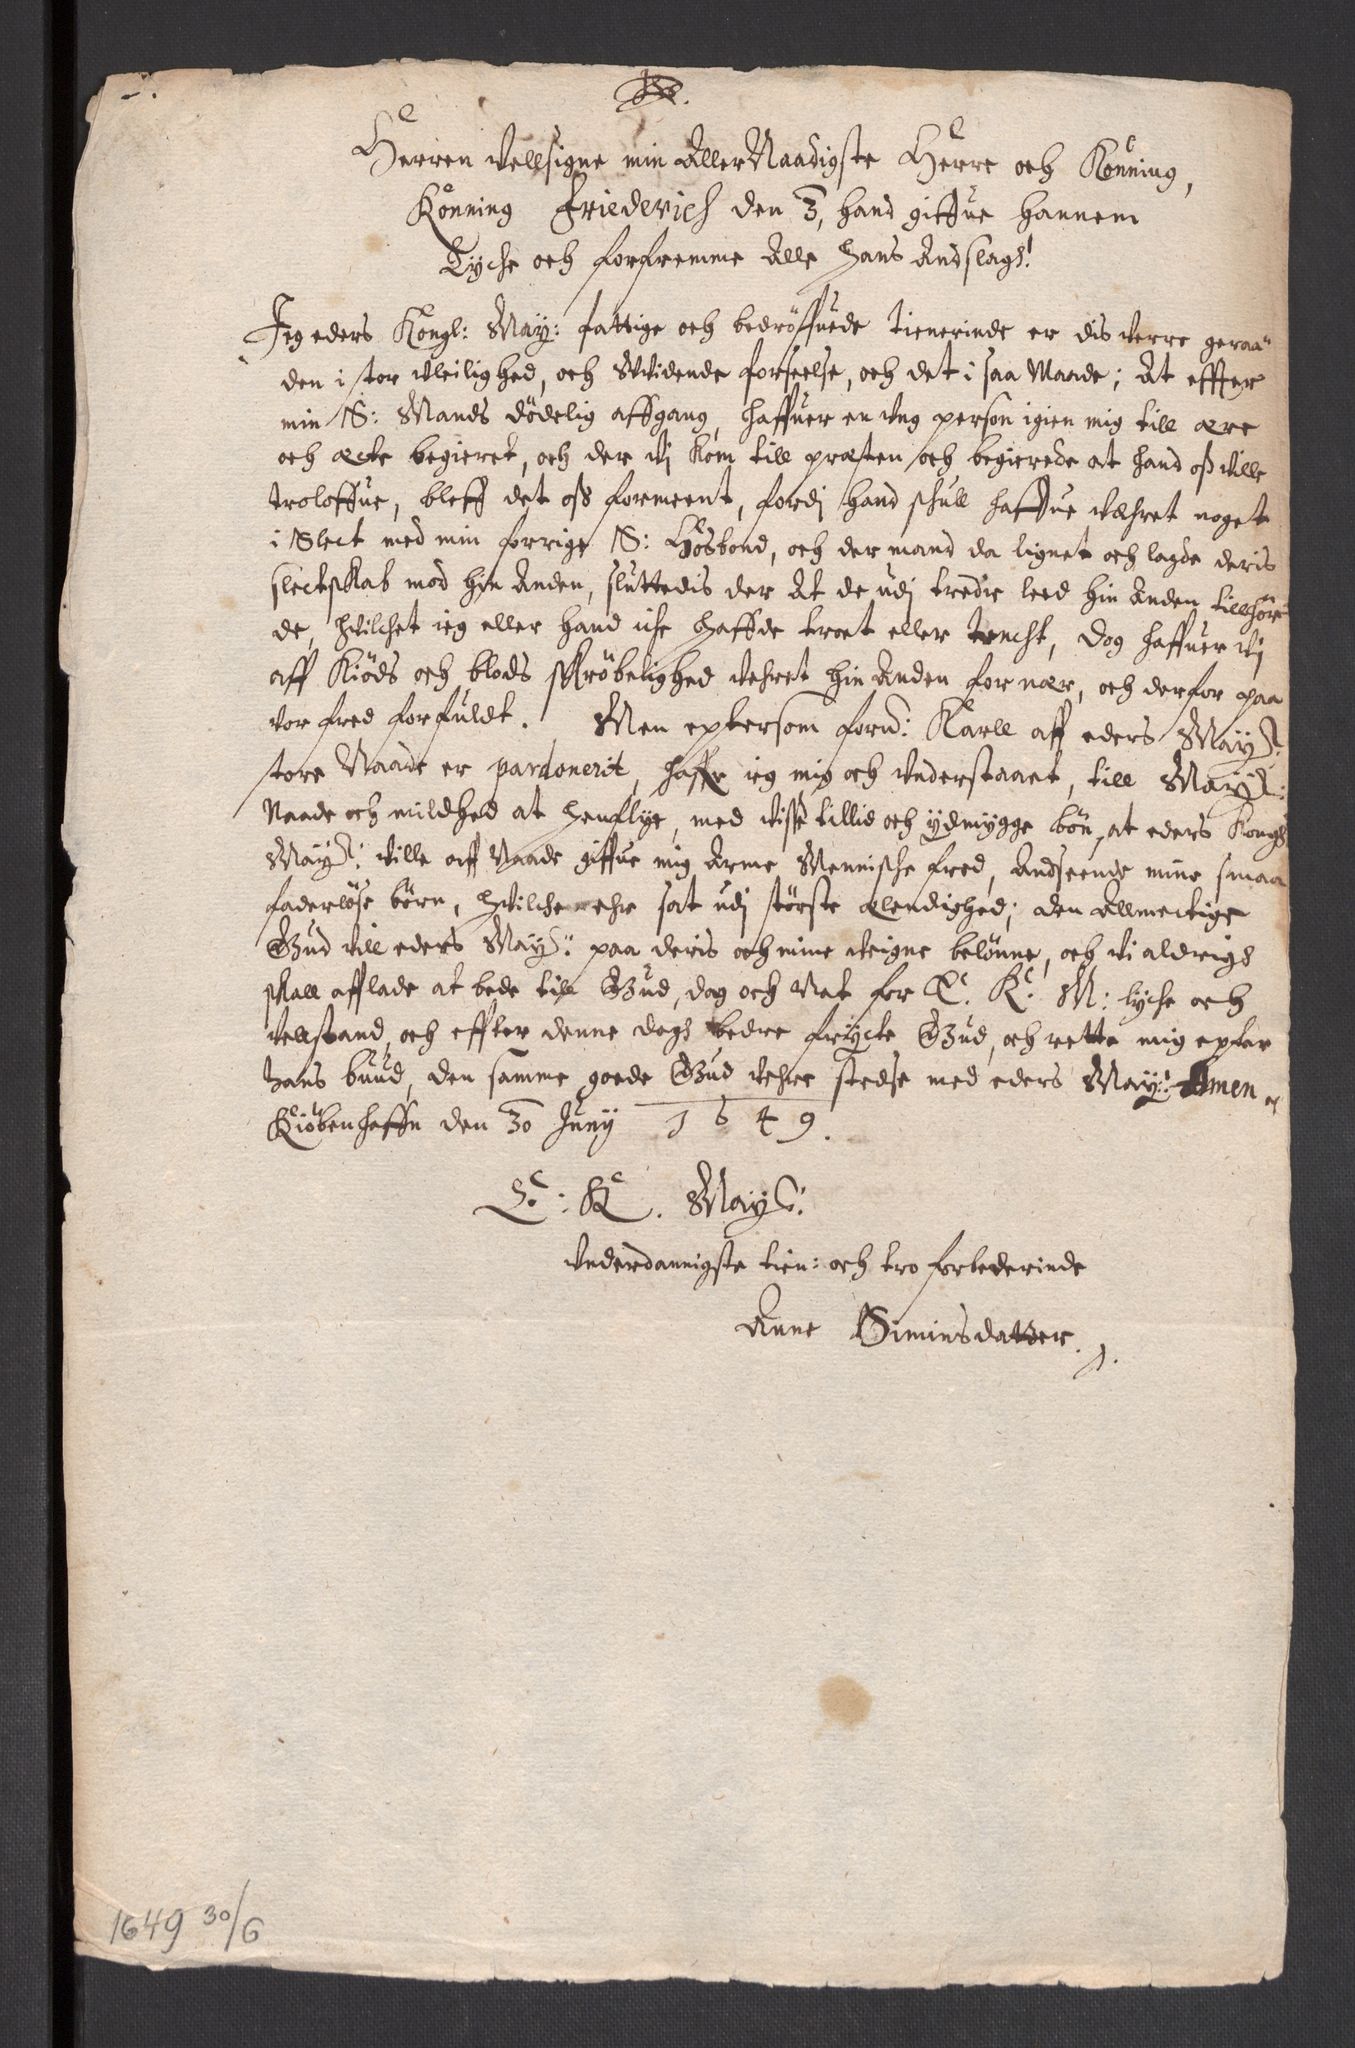 Herren velsigne min AllerNaadigste Herre och Konning,
Konning Friederich den 3, hand giffue hannem
Lyche och forfremme Alle hans Andslags!
Jeg eders Kongl: May: fattige och bedröffuede tienerinde er dis verre geraa¨
den i stor vleilighed, och Wvidende forseelse, och det i saa Maade; At effter
min S: Mands dödelig affgang, haffuer en vng person igien mig till ære
och æcte begieret, och der vj kom till præsten och begierede at hand oss ville
troloffue, bleff det oss formeent, fordj hand schull haffue væhret noget
i Slect med min forrige S: Hosbond, och der mand da lignet och lagde deris
slectskab mod hin Anden, sluttedis der At de udj tredie leed hin Anden tillhör¨
de, hvilchet ieg eller hand iche haffde troet eller tencht, dog haffuer vj
aff Kiöds och blods skröbelighed vehret hin Anden for nær, och derfor paa
vor fred forfuldt. Men epftersom forn: Karll aff eders May:
store Naade er pardonerit, haffr ieg mig och vnderstaaet, till May:
Naade och mildhed at henflye, med visse tillid och ydmygge bön, at eders Kongl
May: ville aff Naade giffue mig Arme Mennische fred, Andseende mine smaa
faderlöse börn, hvilche ehr sat udj störste elendighed; den Allmectige
Gud vill eders May: paa deris och mine veigne belönne, och vi aldrigh
skall afflade at bede till Gud, dag och Nat for E. K. M: lyche och
velstand, och effter denne dagh bedre frycte Gud, och rette mig epfter
hans buud, den samme goede Gud vehre stedse med eders May: Amen
Kiöbenhaffn den 30 Juny 1649.
E: K. May:
vnderdannigste tien: och tro forbederinde
Anne Siminsdatter.
1649 30/6